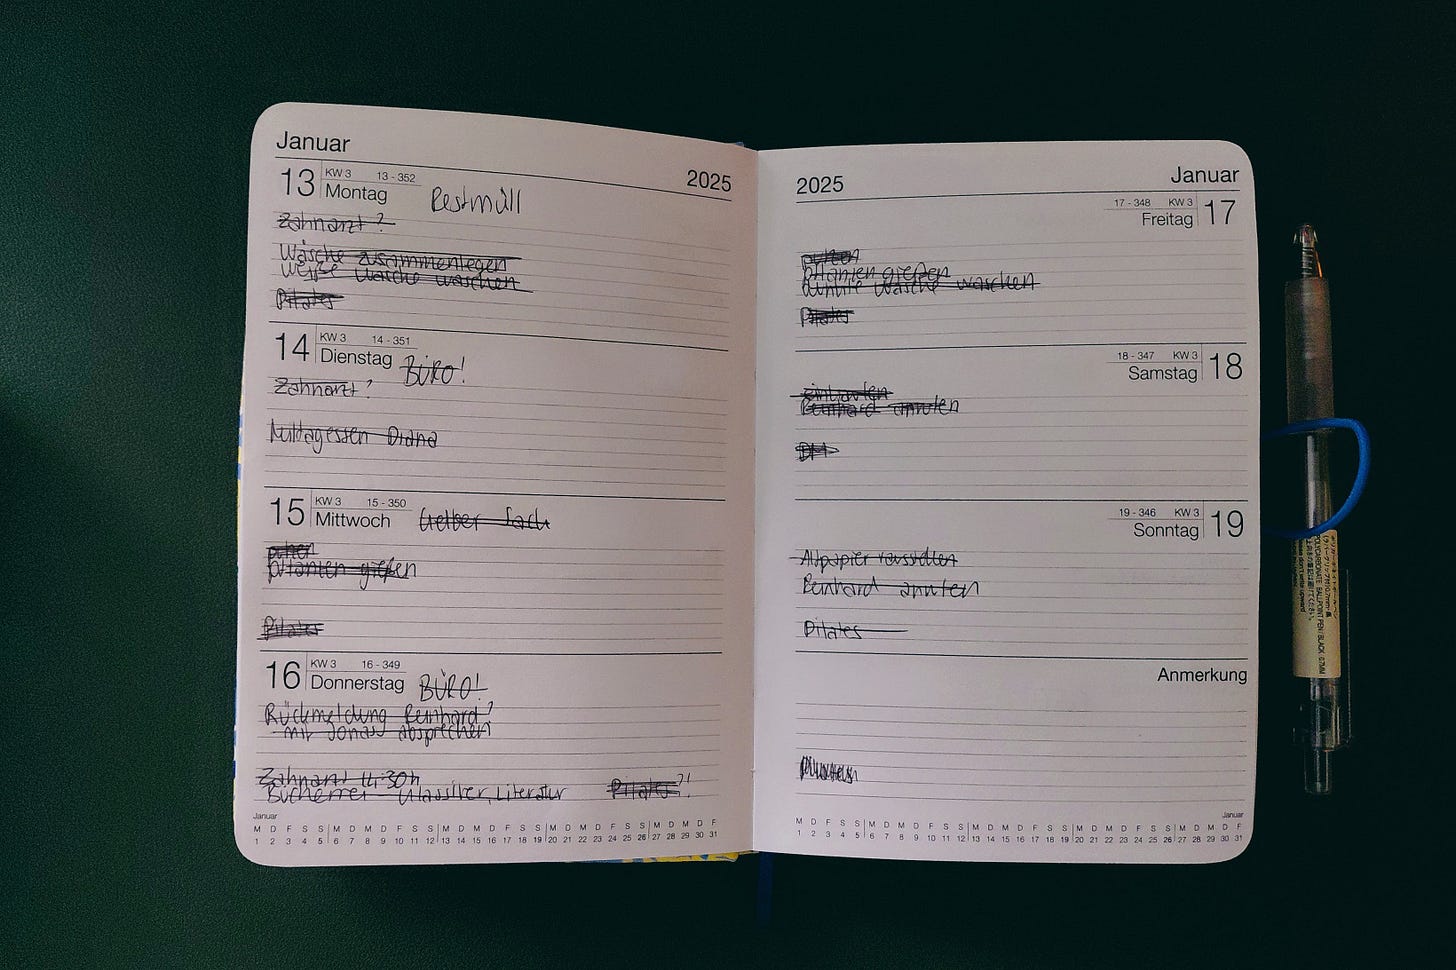 Januar
2025
13 KW 3 13 - 352
Montag Restmüll
Zahnarzt ?
Wäsche zusammenlegen
weiße Wäsche waschen
Pilates
14 KW 3 14 - 351
Dienstag BÜRO!
Zahnarzt ?
Mittagessen Diana
15 KW 3 15 - 350
Mittwoch Gelber Sack
putzen
pflanzen gießen
Pilates
16 KW 3 16 - 349
Donnerstag BÜRO!
Rückmeldung Reinhard?
- mit Jonas absprechen
Zahnarzt 14:30h
Bücherei - Klassiker, Literatur Pilates?!
Januar
M D F S S M D M D F S S M D M D F S S M D M D F S S M D M D F
1 2 3 4 5 6 7 8 9 10 11 12 13 14 15 16 17 18 19 20 21 22 23 24 25 26 27 28 29 30 31
2025
Januar
17 - 348 KW 3 17
Freitag
putzen
pflanzen gießen
dunkle Wäsche waschen
Pilates
18 - 347 KW 3 18
Samstag
einkaufen
Reinhard anrufen
DM
19 - 346 KW 3 19
Sonntag
Altpapier rausstellen
Reinhard anrufen
Pilates
Anmerkung
Januar
M D F S S M D M D F S S M D M D F S S M D M D F S S M D M D F
1 2 3 4 5 6 7 8 9 10 11 12 13 14 15 16 17 18 19 20 21 22 23 24 25 26 27 28 29 30 31
POLYCARBONATE BALLPOINT PEN / BLACK 0.7MM